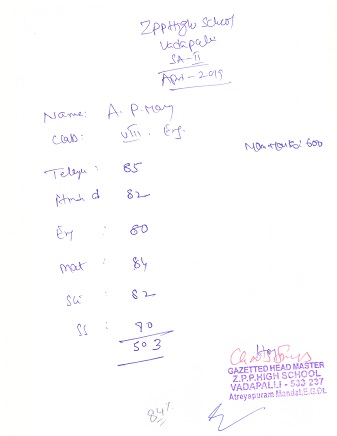 ZPP High School
Vadapalli
SA-II
April - 2019
Name: A. P. Mary
Class: VIII. Eng.
Max marks: 600
Telugu : 85
Hindi : 82
Eng : 80
Mat : 84
Sci : 82
SS : 80
503
GAZETTED HEAD MASTER
Z.P.P. HIGH SCHOOL
VADAPALLI - 533 237
Atreyapuram Mandal, E.G.Dt.
84%